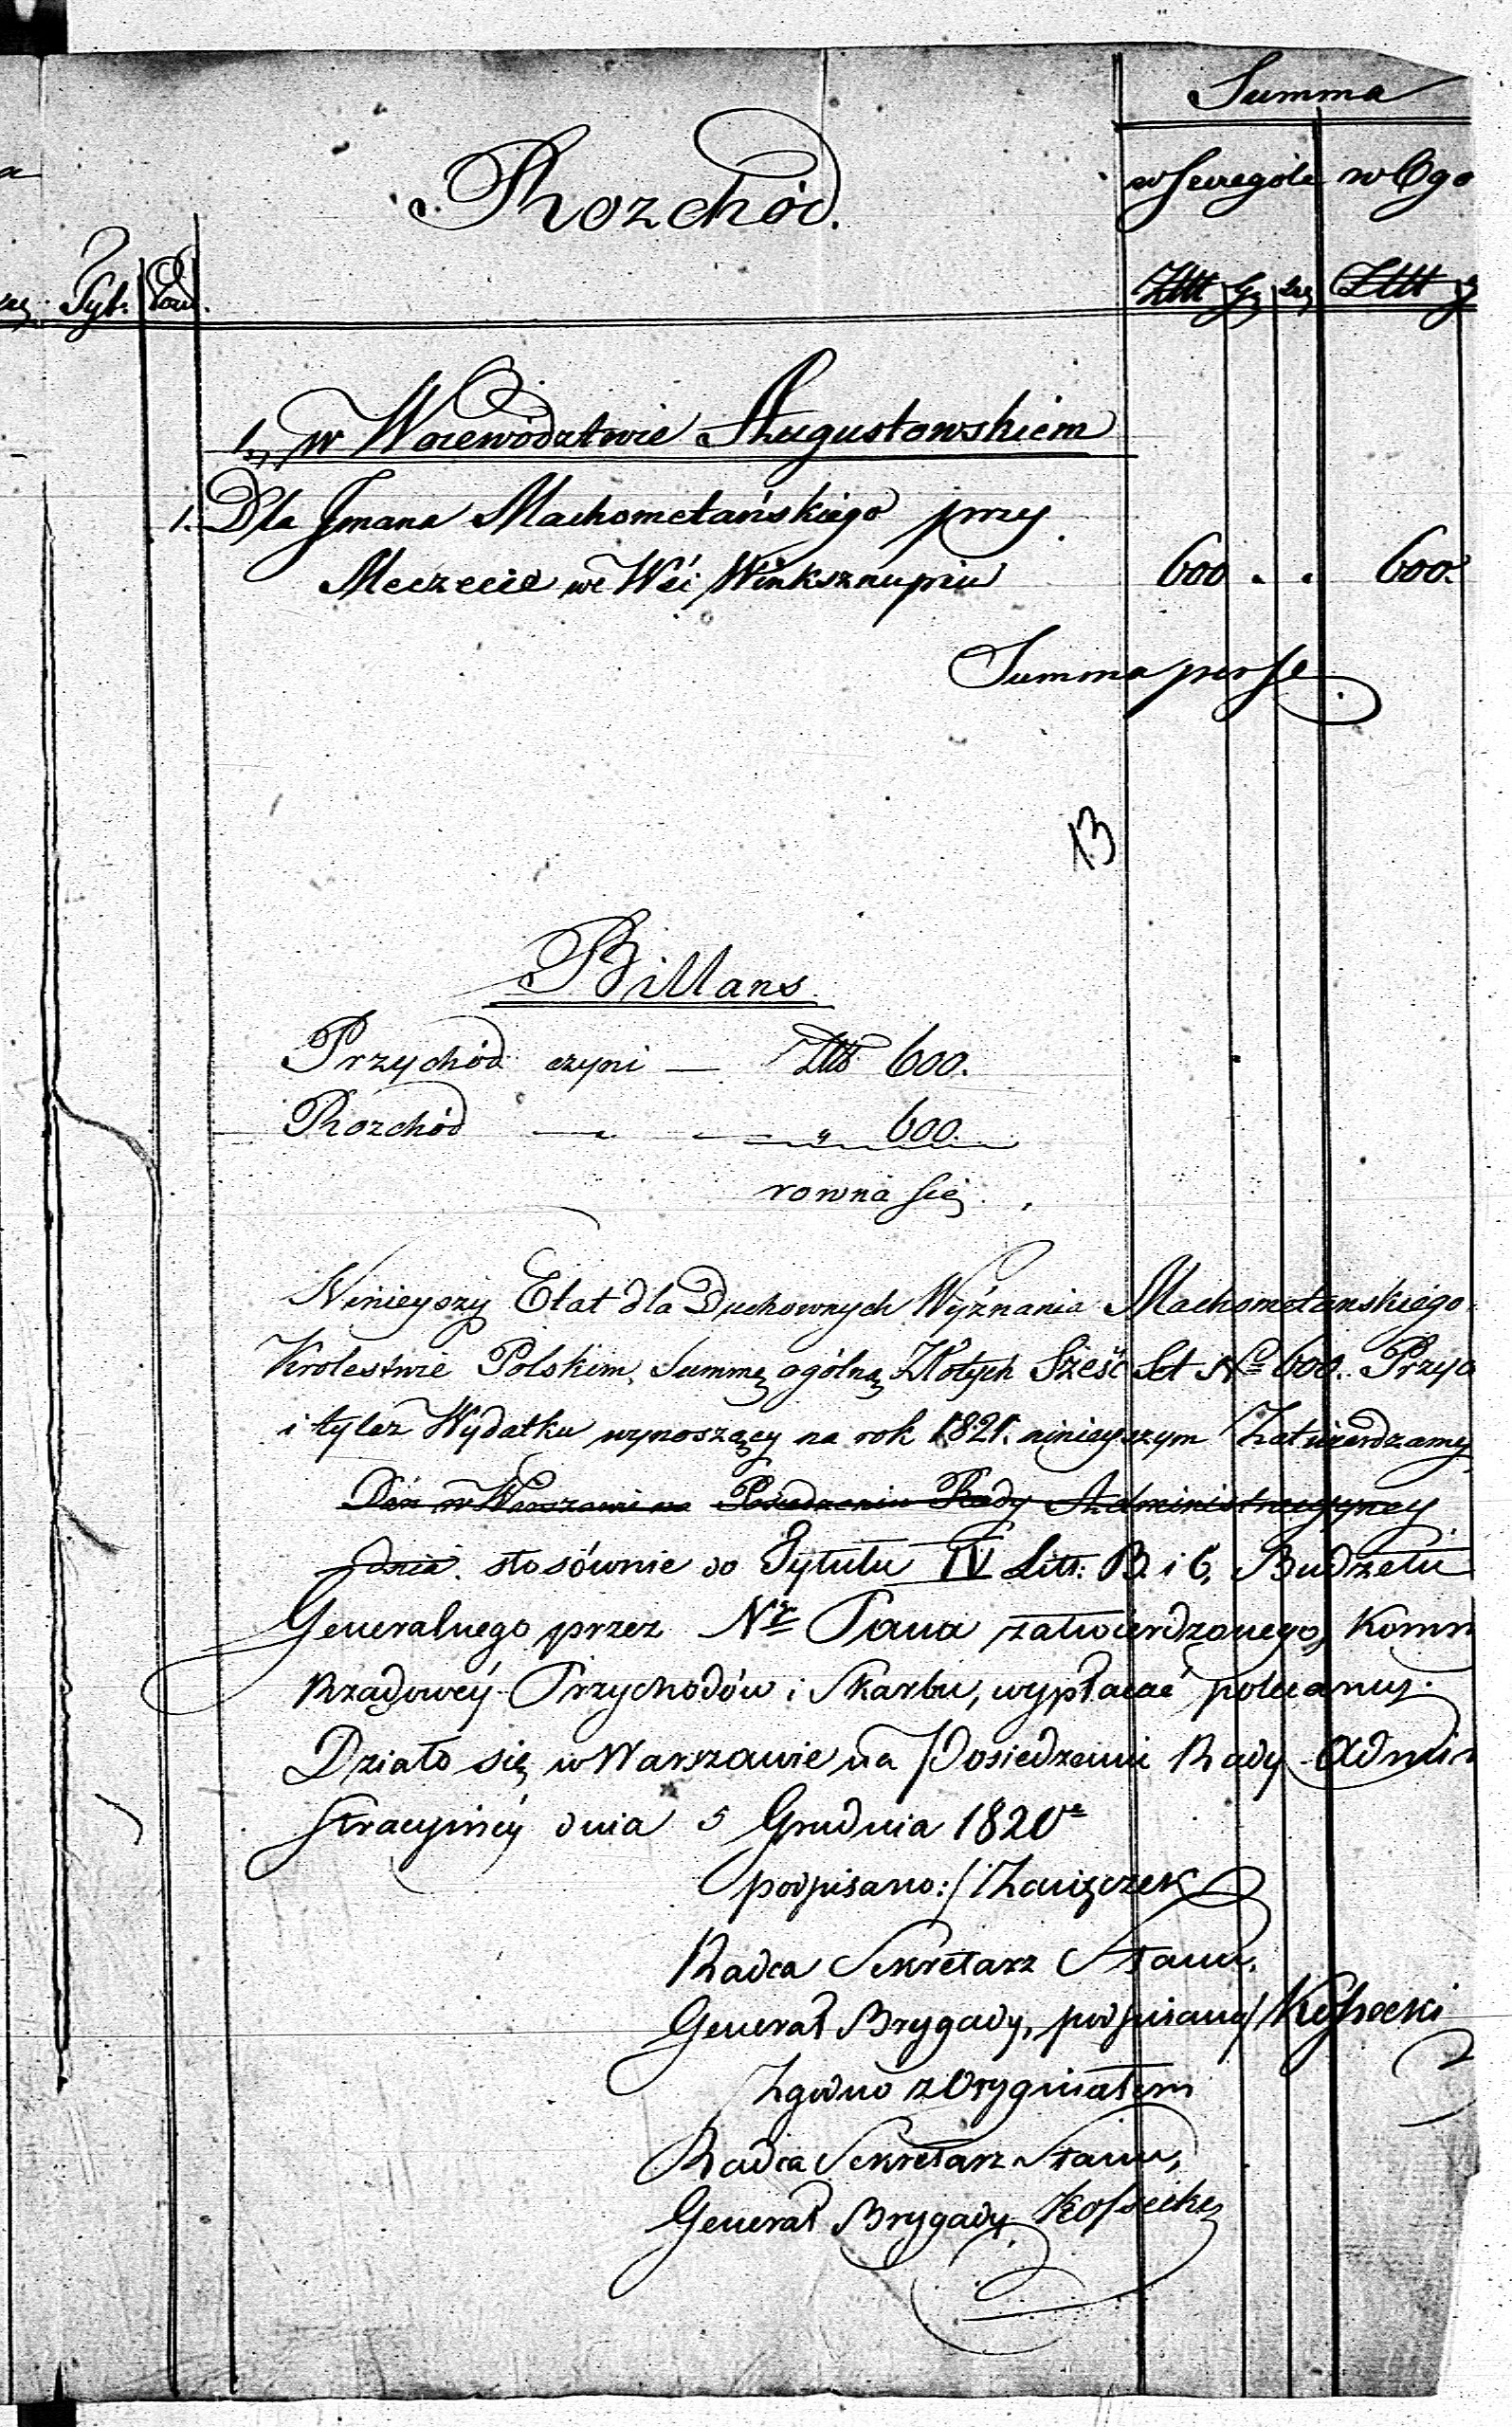 Summa
Rozchód.
w Szczególe w Ogó
Tyt.
Złł gr Złł g
1, w Woiewództwie Augustowskiem
1. Dla Jmana Machometańskiego przy
Meczecie we Wsi Winksznupiu
600 . . 600.
Summa per se
13
Billans
Przychód czyni — Złł 600.
Rozchód — — „ 600.
rowna się
Ninieyszy Etat dla Duchownych Wyznania Machometanskiego
Krolestwie Polskim, Summę ogólną Złotych Sześć Set No 600. Przyc
i tylez Wydatku wynoszący na rok 1821. ninieyszym Zatwierdzamy
Dan w Warszawie na Posiedzeniu Rady Administracyyney
dnia. stosównie do Tytułu IV Litt: B. i 6, Budżetu
Generalnego przez Nr Pana zatwierdzonego, Komm
Rządowéy Przychodów i Skarbu, wypłacać polecamy.
Działo się w Warszawie na Posiedzeniu Rady Admin
stracyinéy dnia 5 Grudnia 1820 r
podpisano:/ Zaiączek
Radca Sekretarz Stanu,
Generał Brygady, podpisano/ Kossecki
Zgodno z Oryginałem
Radca Sekretarz Stanu,
Generał Brygady Kossecki